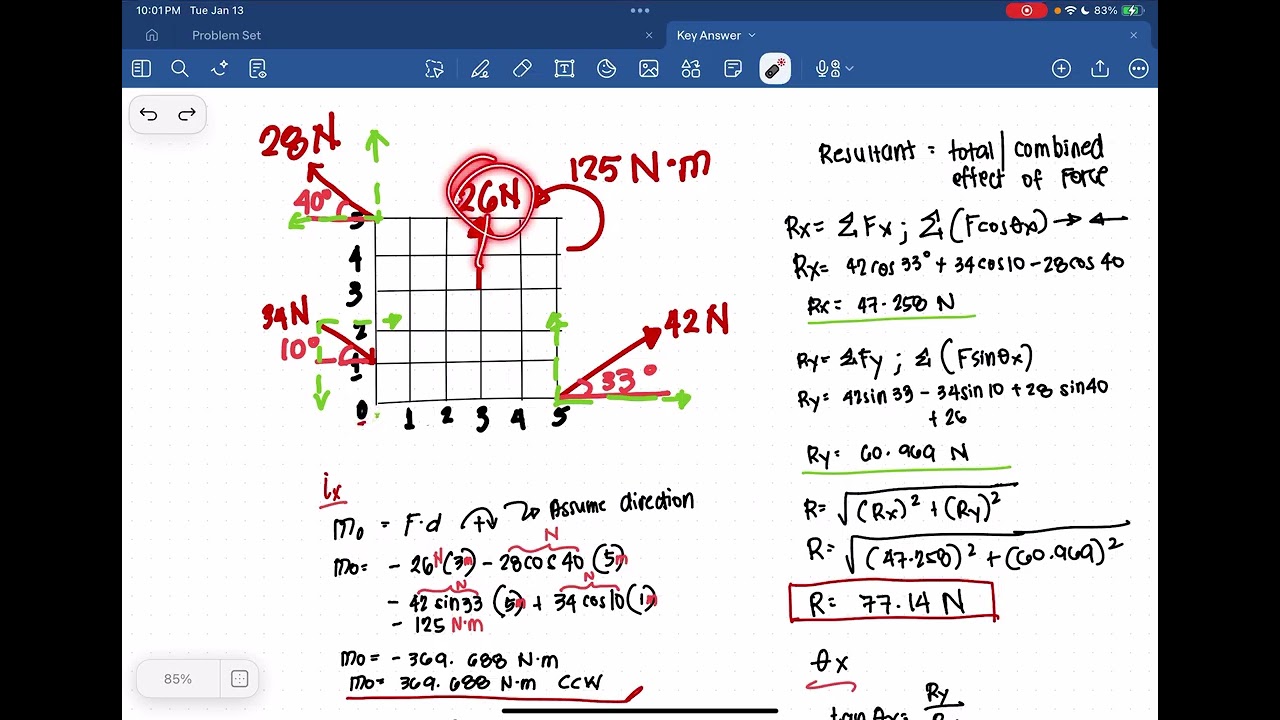 10:01PM Tue Jan 13
83%
Problem Set
Key Answer
28N
40°
26N
125 N·m
5
4
3
34N
2
10°
1
0
1 2 3 4 5
42N
33°
Resultant = total | combined
effect of Force
Rx = ΣFx ; Σ(Fcosθx) → ←
Rx = 42cos33° + 34cos10 - 28cos40
Rx = 47.258 N
Ry = ΣFy ; Σ(Fsinθx)
Ry = 42sin33 - 34sin10 + 28 sin40
+ 26
Ry = 60.969 N
R = √(Rx)² + (Ry)²
R = √(47.258)² + (60.969)²
R = 77.14 N
θx
tanθx = Ry
ix
Mo = F·d + Assume direction
N
Mo = - 26N(3m) - 28cos40 (5m)
N N
- 42 sin33 (5m) + 34cos10(1m)
- 125 N·m
Mo = - 369.688 N·m
Mo = 369.688 N·m CCW
85%